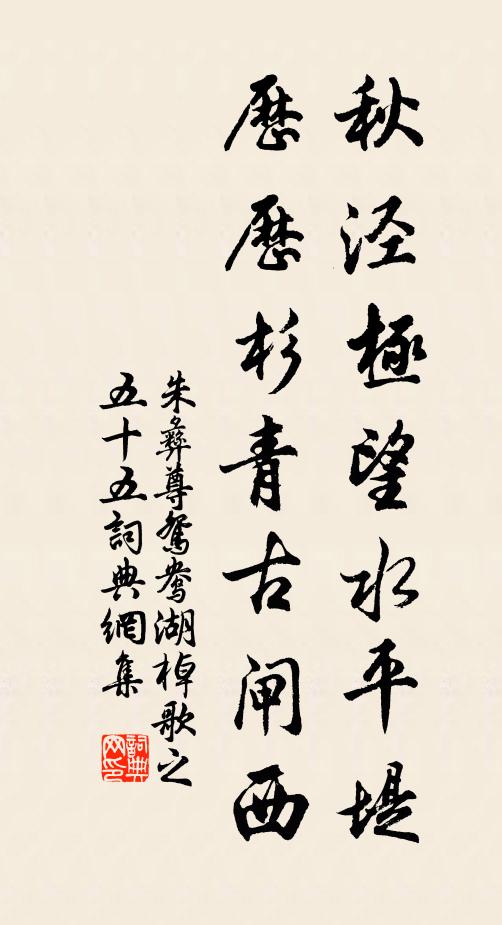 秋泾極望水平堤
歷歷杉青古闸西
朱彝尊鴛鴦湖棹歌之
五十五詞典網集
詞典
网印